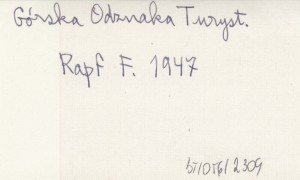 Górska Odznaka Turyst.
Rapf F. 1947
bT/OT6/2309